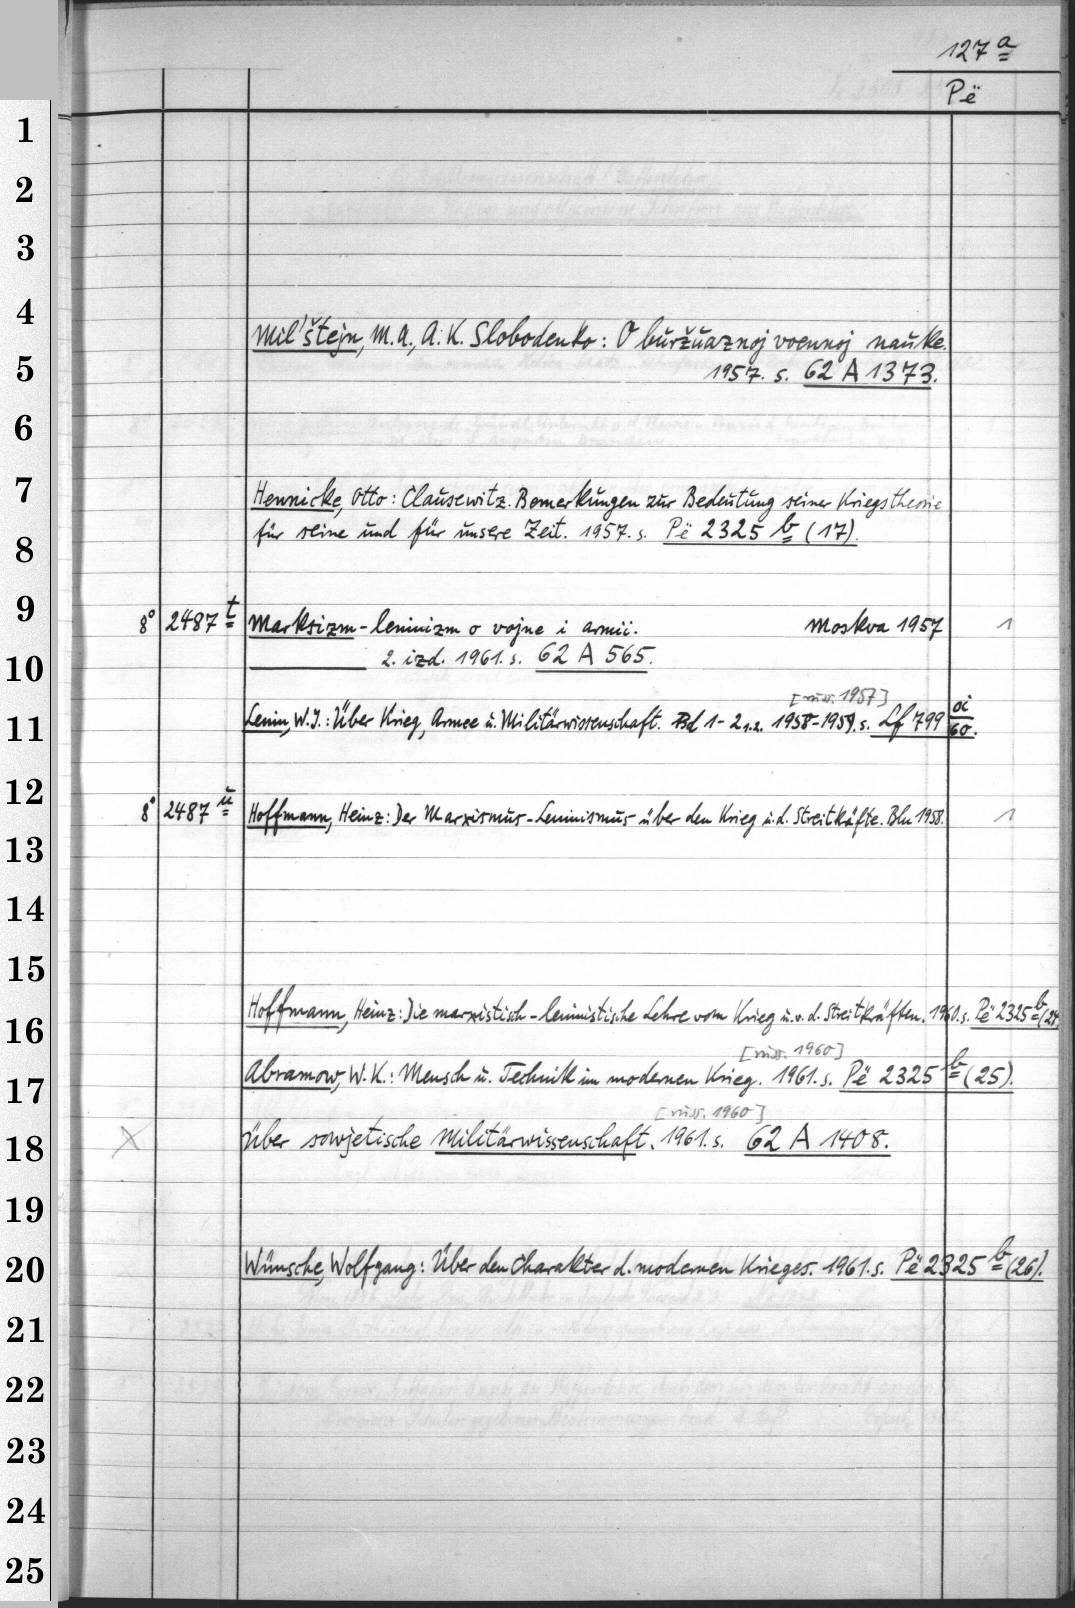 127 a
Pë
1
2
3
4
Mil'štejn, M.A., A. K. Slobodenko: O buržuaznoj voennoj nauke.
5 1957. s. 62 A 1373.
6
7 Hennicke, Otto: Clausewitz. Bemerkungen zur Bedeutung seiner Kriegstheorie
8 für seine und für unsere Zeit. 1957. s. Pë 2325 b (17).
9 8° 2487 t Marksizm-leninizm o vojne i armii. Moskva 1957 1
10 2. izd. 1961. s. 62 A 565.
[russ. 1957]
11 Lenin, W.I.: Über Krieg, Armee u. Militärwissenschaft. Bd 1-2 1.2. 1958-1959. s. Lf 799 oi/60.
12 8° 2487 u Hoffmann, Heinz: Der Marxismus-Leninismus über den Krieg u. d. Streitkäfte. Bln 1958. 1
13
14
15
16 Hoffmann, Heinz: Die marxistisch-leninistische Lehre vom Krieg u. v. d. Streitkräften. 1960. s. Pë 2325 b (24
[russ. 1960]
17 Abramow, W.K.: Mensch u. Technik im modernen Krieg. 1961. s. Pë 2325 b (25).
[russ. 1960]
18 X Über sowjetische Militärwissenschaft. 1961. s. 62 A 1408.
19
20 Wünsche, Wolfgang: Über den Charakter d. modernen Krieges. 1961. s. Pë 2325 b (26).
21
22
23
24
25